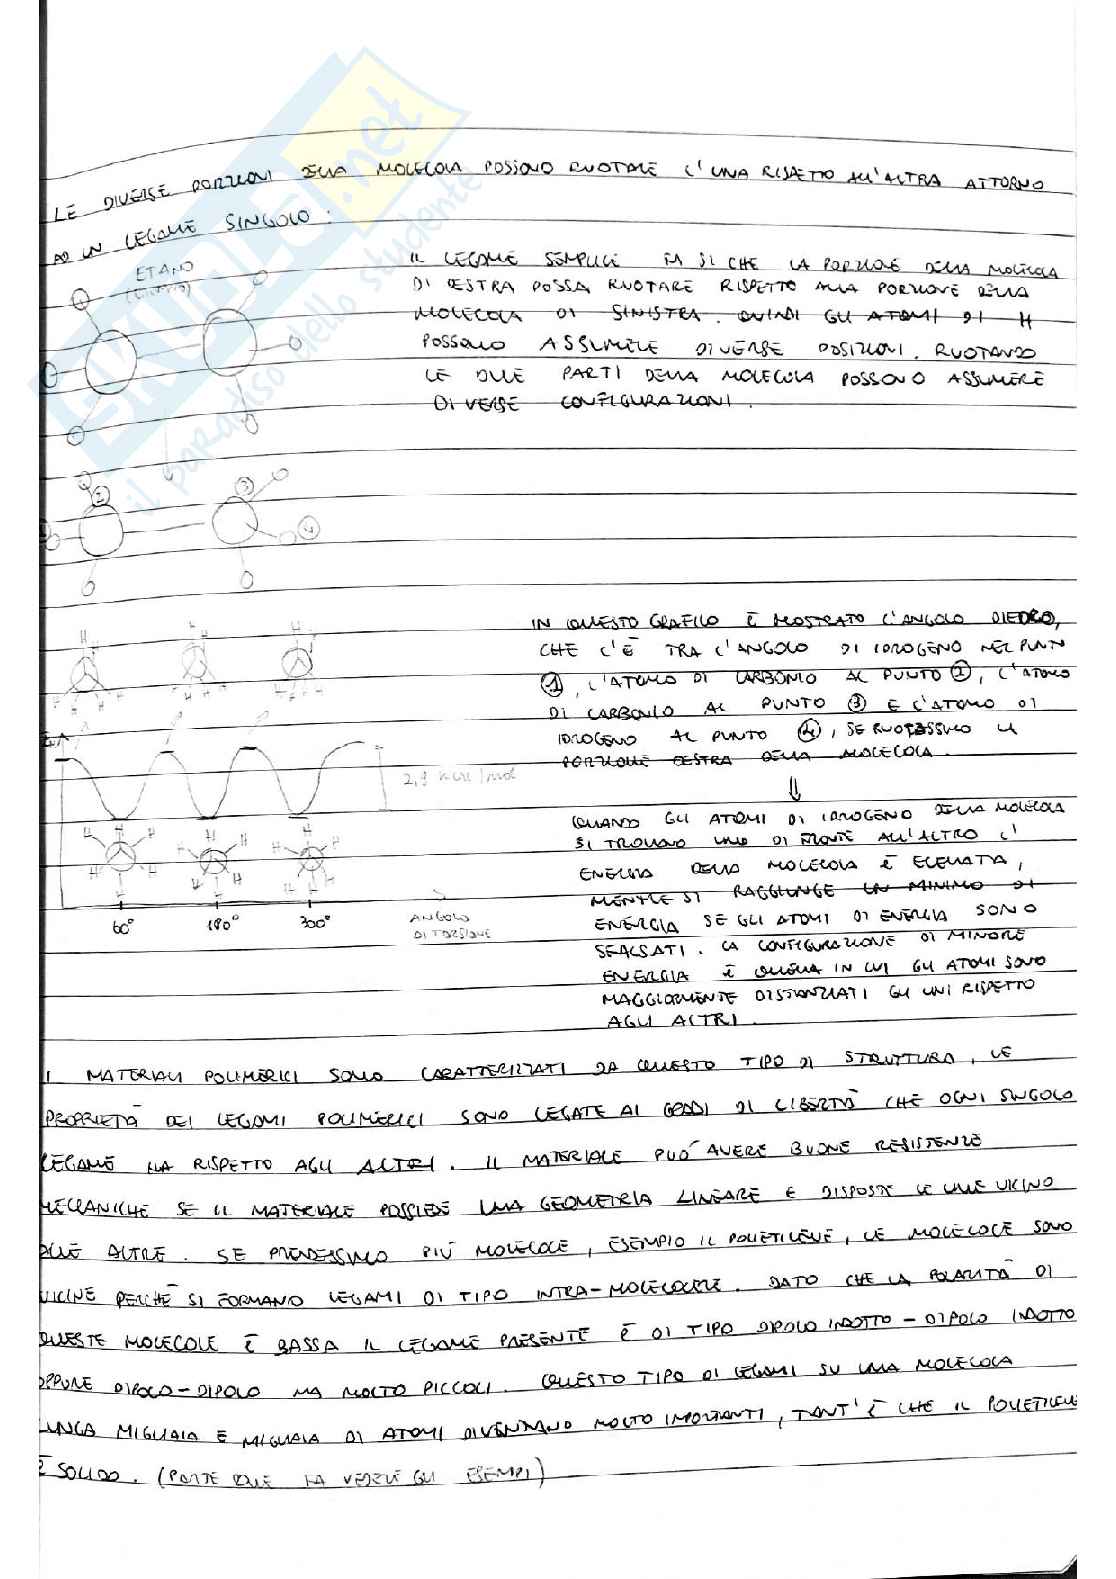 LE DIVERSE PORZIONI DELLA MOLECOLA POSSONO RUOTARE L'UNA RISPETTO ALL'ALTRA ATTORNO
AD UN LEGAME SINGOLO:
ETANO
IL LEGAME SEMPLICE FA SI CHE LA PORZIONE DELLA MOLECOLA
DI DESTRA POSSA RUOTARE RISPETTO ALLA PORZIONE DELLA
MOLECOLA DI SINISTRA. QUINDI GLI ATOMI DI H
POSSONO ASSUMERE DIVERSE POSIZIONI. RUOTANDO
LE DUE PARTI DELLA MOLECOLA POSSONO ASSUMERE
DIVERSE CONFIGURAZIONI.
1
2 3
4
IN QUESTO GRAFICO È MOSTRATO L'ANGOLO DIEDRO,
CHE C'È TRA L'ANGOLO DI IDROGENO NEL PUNTO
1, L'ATOMO DI CARBONIO AL PUNTO 2, L'ATOMO
DI CARBONIO AL PUNTO 3 E L'ATOMO DI
IDROGENO AL PUNTO 4, SE RUOTASSIMO LA
PORZIONE DESTRA DELLA MOLECOLA.
⇓
2,9 kcal/mol
QUANDO GLI ATOMI DI IDROGENO DELLA MOLECOLA
SI TROVANO UNO DI FRONTE ALL'ALTRO L'
ENERGIA DELLA MOLECOLA È ELEVATA,
MENTRE SI RAGGIUNGE UN MINIMO DI
ENERGIA SE GLI ATOMI DI ENERGIA SONO
SFALSATI. LA CONFIGURAZIONE DI MINORE
ENERGIA È QUELLA IN CUI GLI ATOMI SONO
MAGGIORMENTE DISTANZIATI GLI UNI RISPETTO
AGLI ALTRI.
60° 180° 300°
ANGOLO
DI TORSIONE
I MATERIALI POLIMERICI SONO CARATTERIZZATI DA QUESTO TIPO DI STRUTTURA, LE
PROPRIETÀ DEI LEGAMI POLIMERICI SONO LEGATE AI GRADI DI LIBERTÀ CHE OGNI SINGOLO
LEGAME HA RISPETTO AGLI ALTRI. IL MATERIALE PUÒ AVERE BUONE RESISTENZE
MECCANICHE SE IL MATERIALE POSSIEDE UNA GEOMETRIA LINEARE E DISPOSTE LE UNE VICINO
ALLE ALTRE. SE PRENDESSIMO PIÙ MOLECOLE, ESEMPIO IL POLIETILENE, LE MOLECOLE SONO
VICINE PERCHÈ SI FORMANO LEGAMI DI TIPO INTRA-MOLECOLARE. DATO CHE LA POLARITÀ DI
QUESTE MOLECOLE È BASSA IL LEGAME PRESENTE È DI TIPO DIPOLO INDOTTO - DIPOLO INDOTTO
OPPURE DIPOLO-DIPOLO MA MOLTO PICCOLI. QUESTO TIPO DI LEGAMI SU UNA MOLECOLA
LUNGA MIGLIAIA E MIGLIAIA DI ATOMI DIVENTANO MOLTO IMPORTANTI, TANT'È CHE IL POLIETILENE
È SOLIDO. (PARTE DOVE FA VEDERE GLI ESEMPI)
SKUOLA.net
il paradiso dello studente